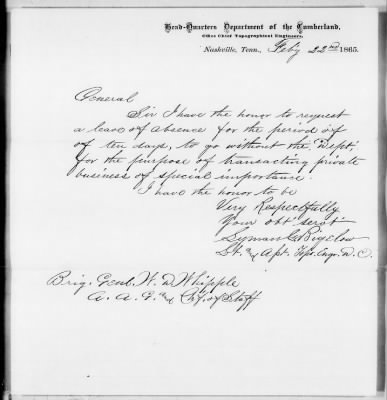 Head-Quarters Department of the Cumberland,
Office Chief Topographical Engineers,
Nashville, Tenn., Feby 22nd 1865.
General
Sir I have the honor to request
a leave of absence for the period of
of ten days, to go without the Dept,
for the purpose of transacting private
business of special importance.
I have the honor to be
Very Respectfully
Your obt servt
Lyman Bigelow
Lt and Engr. D.C.
Brig. Genl. W. D. Whipple
A. A. G. and Chf. of Staff